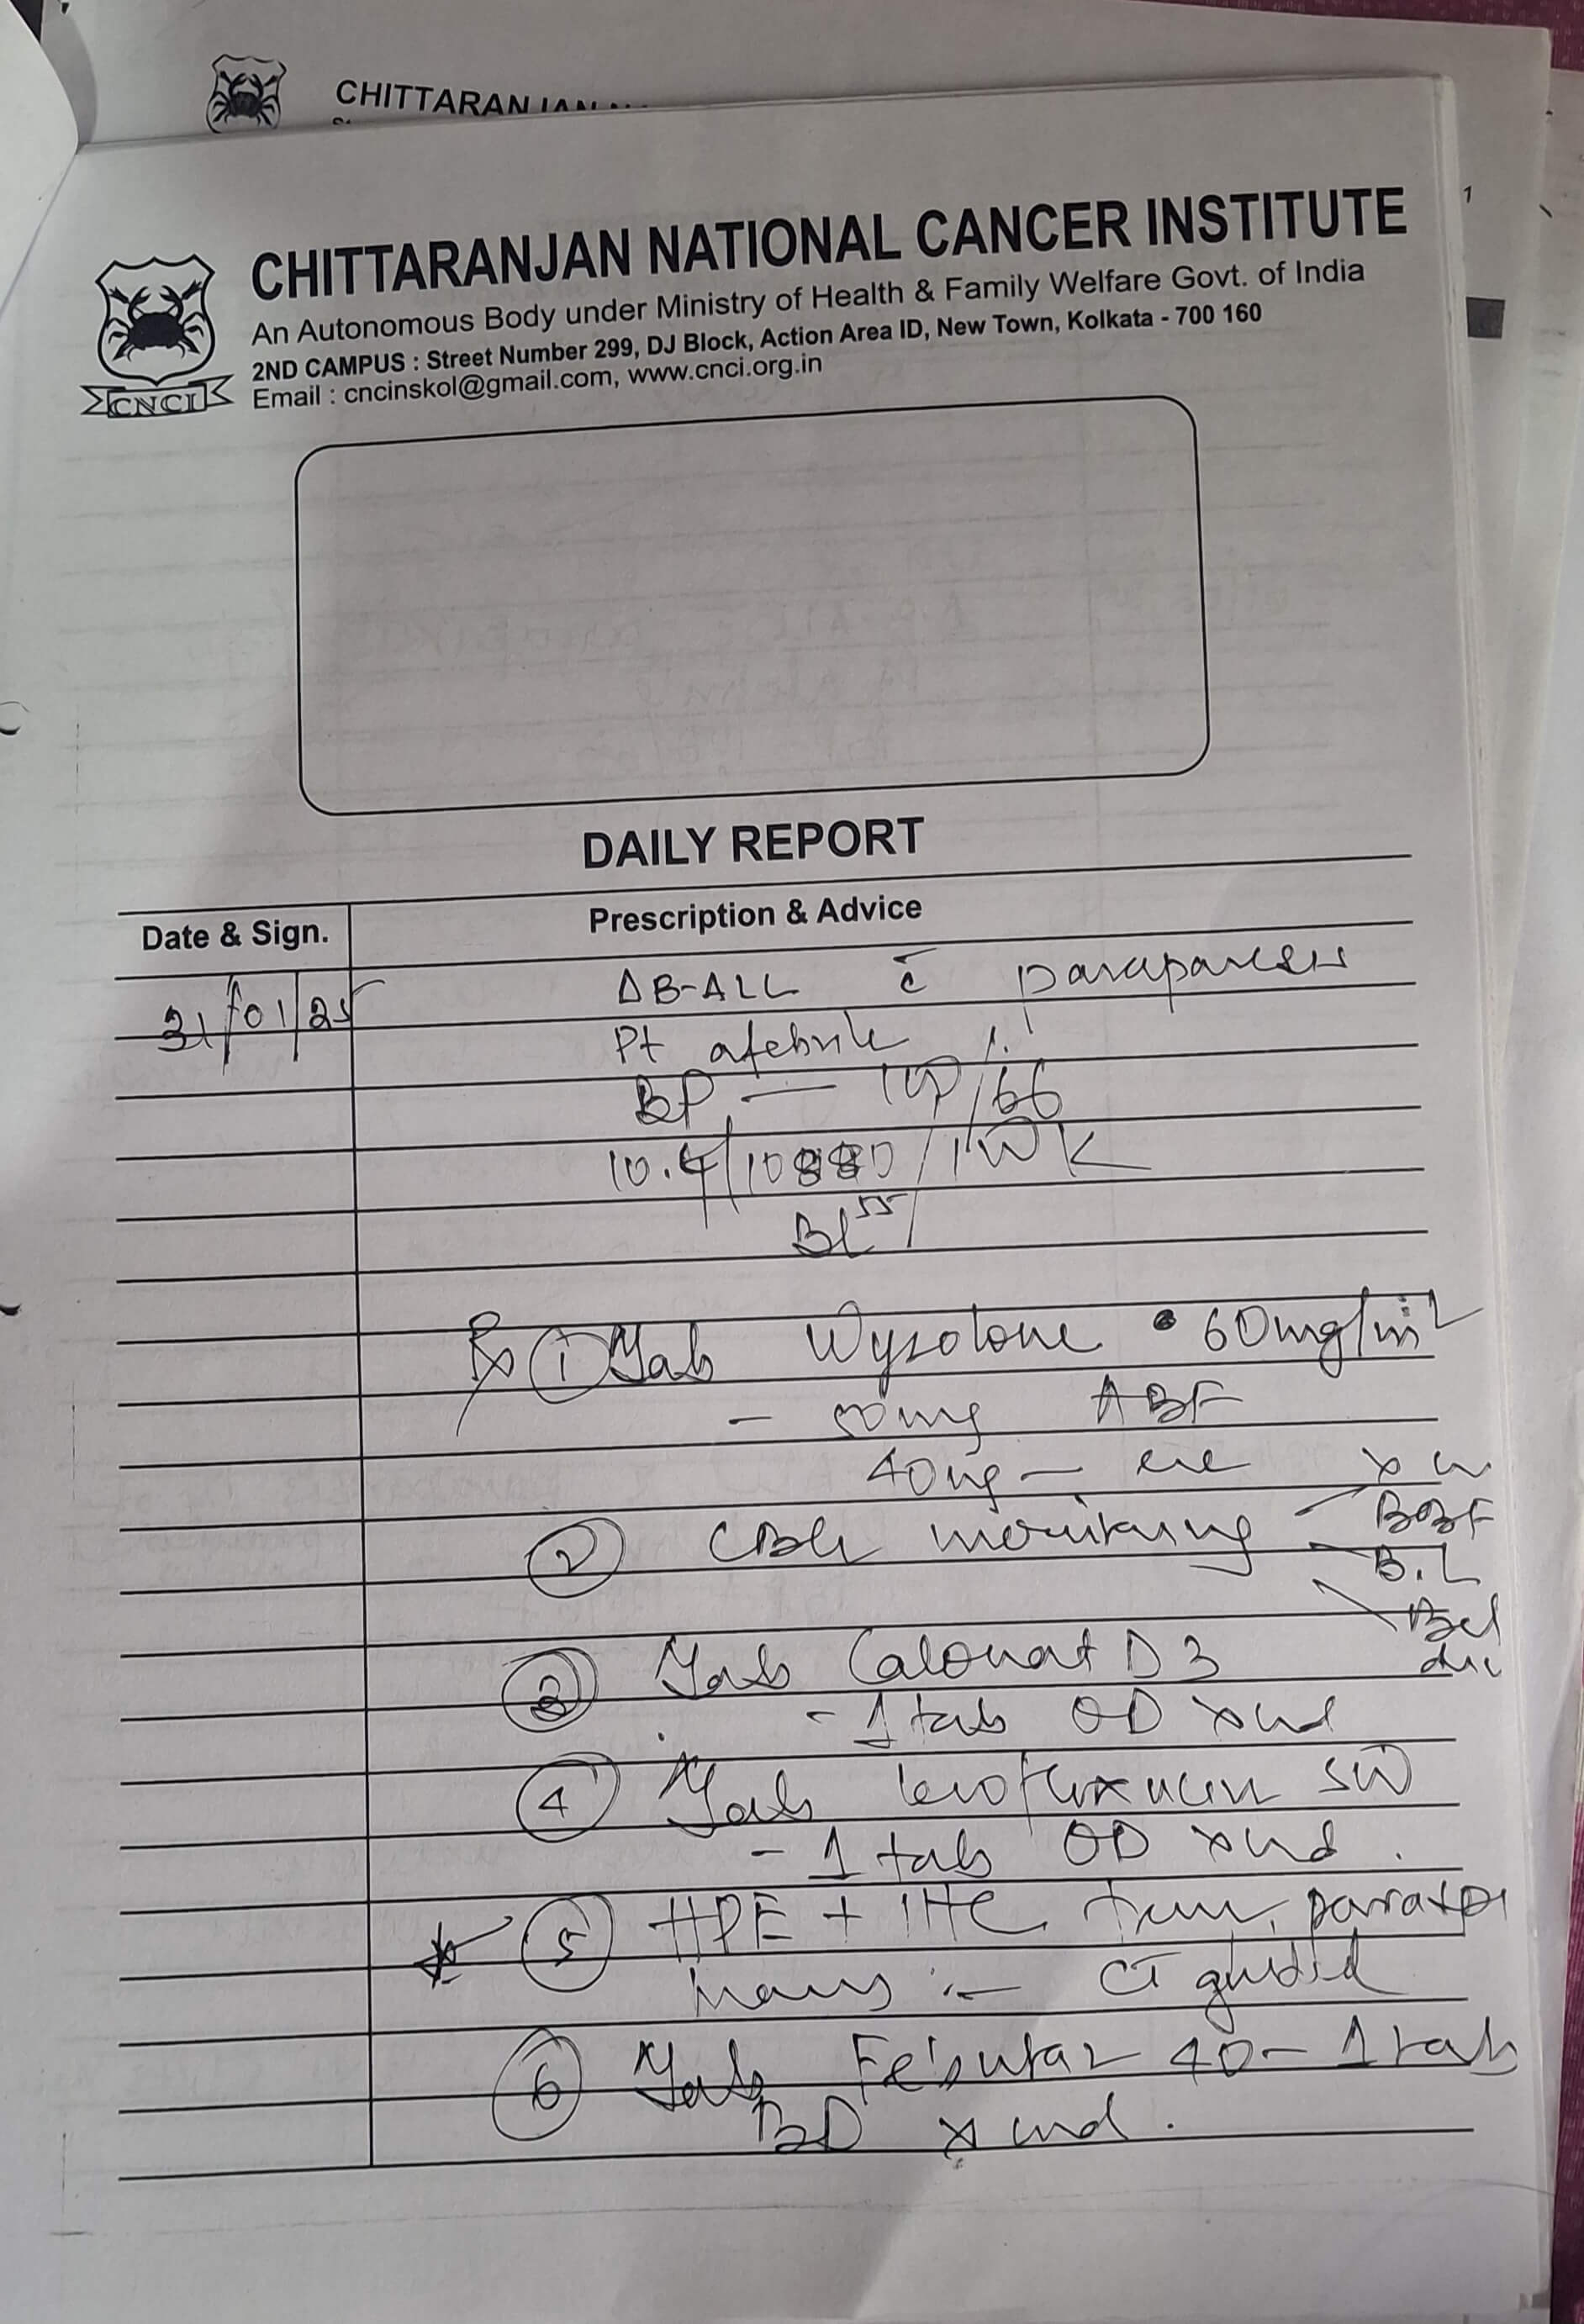 CHITTARAN
CHITTARANJAN NATIONAL CANCER INSTITUTE
An Autonomous Body under Ministry of Health & Family Welfare Govt. of India
2ND CAMPUS : Street Number 299, DJ Block, Action Area ID, New Town, Kolkata - 700 160
Email : cncinskol@gmail.com, www.cnci.org.in
CNCI
DAILY REPORT
Date & Sign.
Prescription & Advice
31/01/25
Δ B-ALL c̄ paraparesis
Pt afebrile
BP - /66
10.4/10880/1
Bl 55
Rx ① Tab Wysolone 60mg/m2
- mg ABF
40mg -
② CBG monitoring - BBF
B.L
③ Tab D3
- 1 tab OD
④ Tab levofloxacin
- 1 tab OD
⑤ HPE + IHC
mass :- CT guided
⑥ Tab 40 - 1 tab
BD